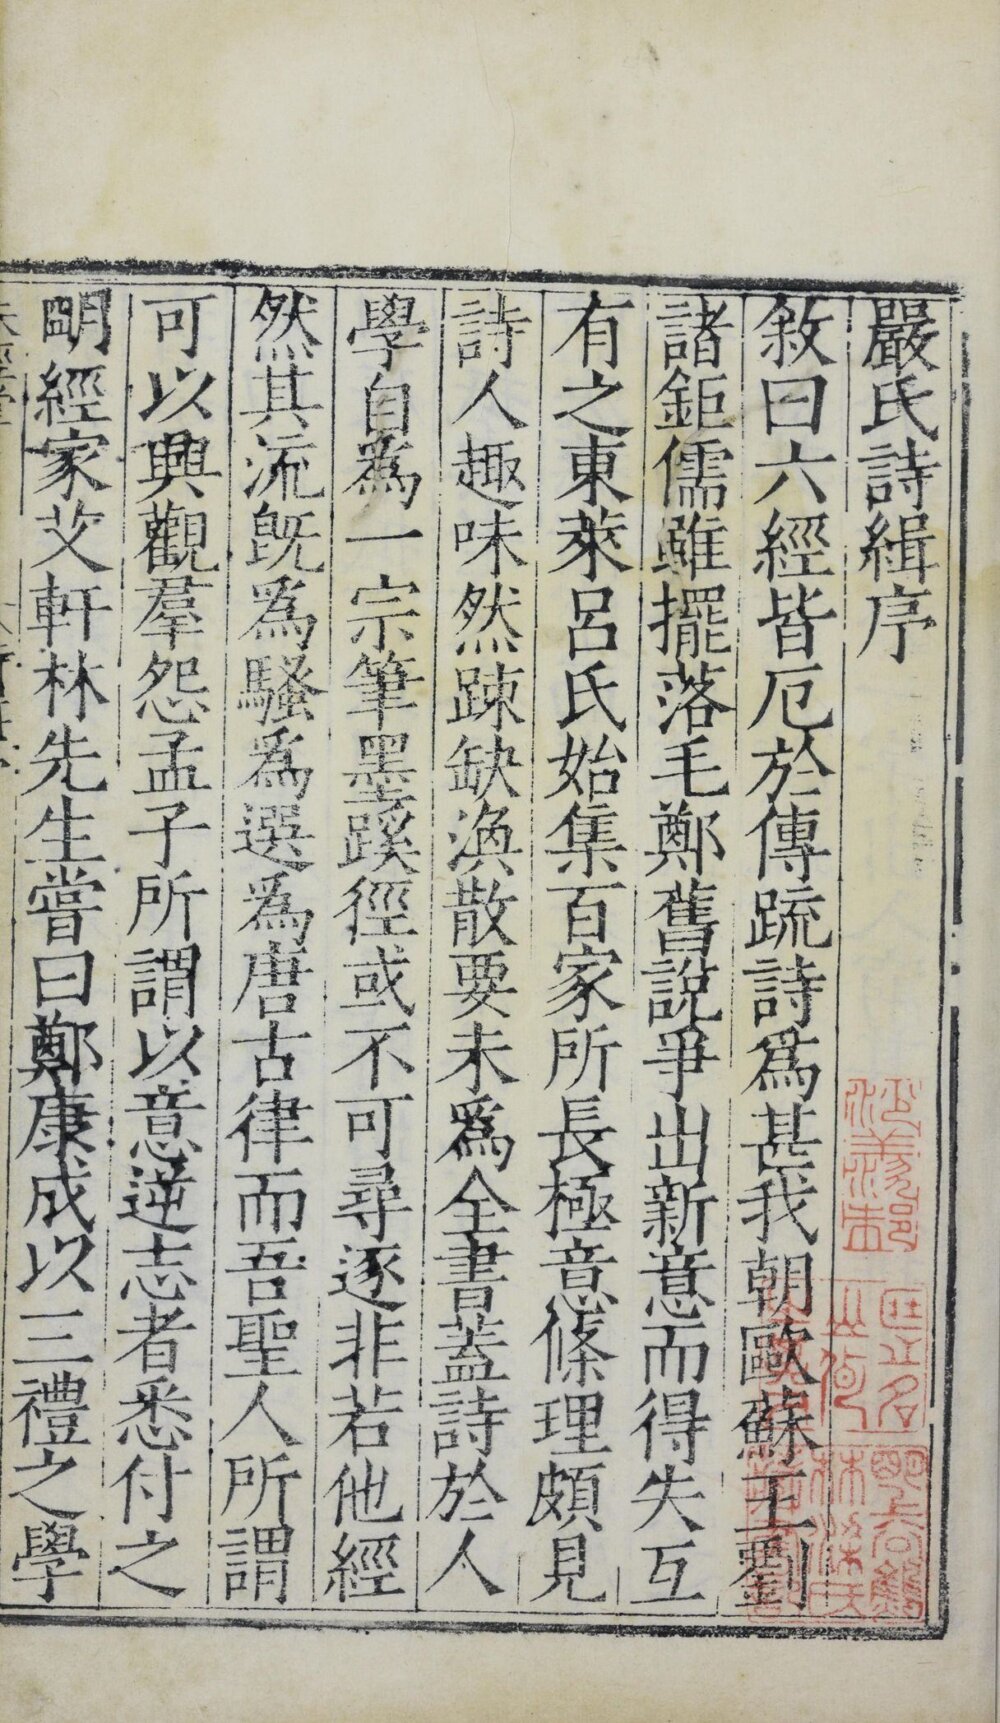 嚴氏詩緝序
敘曰六經皆厄於傳疏詩為甚我朝歐蘇王劉
諸鉅儒雖擺落毛鄭舊說爭出新意而得失互
有之東萊呂氏始集百家所長極意條理頗見
詩人趣味然踈缺渙散要未為全書蓋詩於人
學自為一宗筆墨蹊徑或不可尋逐非若他經
然其流旣為騷為選為唐古律而吾聖人所謂
可以興觀羣怨孟子所謂以意逆志者悉付之
明經家艾軒林先生嘗曰鄭康成以三禮之學